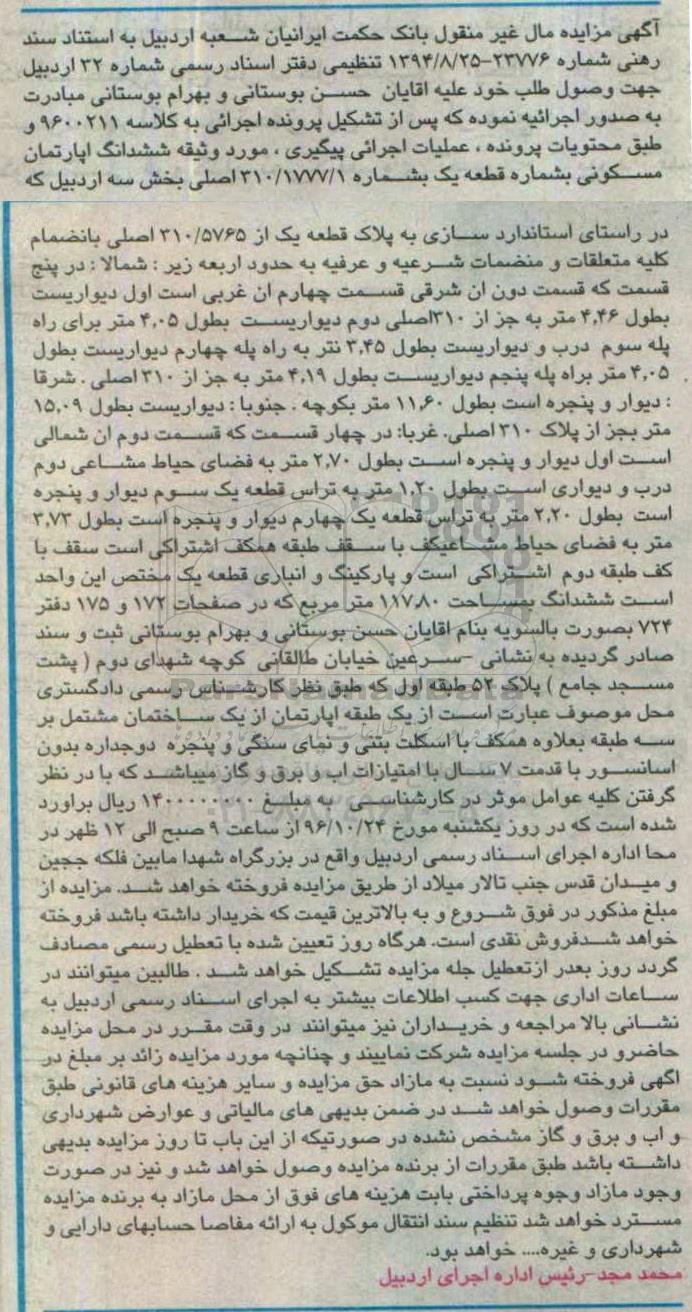 آگهی مزایده مال غیر منقول بانک حکمت ایرانیان شعبه اردبیل به استناد سند
رهنی شماره ۲۳۷۷۶-۱۳۹۴/۸/۲۵ تنظیمی دفتر اسناد رسمی شماره ۳۲ اردبیل
جهت وصول طلب خود علیه اقایان حسن بوستانی و بهرام بوستانی مبادرت
به صدور اجرائیه نموده که پس از تشکیل پرونده اجرائی به کلاسه ۹۶۰۰۲۱۱ و
طبق محتویات پرونده ، عملیات اجرائی پیگیری ، مورد وثیقه ششدانگ اپارتمان
مسکونی بشماره قطعه یک بشماره ۳۱۰/۱۷۷۷/۱ اصلی بخش سه اردبیل که
در راستای استاندارد سازی به پلاک قطعه یک از ۳۱۰/۵۷۶۵ اصلی بانضمام
کلیه متعلقات و منضمات شرعیه و عرفیه به حدود اربعه زیر : شمالا : در پنج
قسمت که قسمت دون ان شرقی قسمت چهارم ان غربی است اول دیواریست
بطول ۴,۴۶ متر به جز از ۳۱۰اصلی دوم دیواریست بطول ۴,۰۵ متر برای راه
پله سوم درب و دیواریست بطول ۳,۴۵ نتر به راه پله چهارم دیواریست بطول
۴,۰۵ متر براه پله پنجم دیواریست بطول ۴,۱۹ متر به جز از ۳۱۰ اصلی . شرقا
: دیوار و پنجره است بطول ۱۱,۶۰ متر بکوچه . جنوبا : دیواریست بطول ۱۵,۰۹
متر بجز از پلاک ۳۱۰ اصلی. غربا: در چهار قسمت که قسمت دوم ان شمالی
است اول دیوار و پنجره است بطول ۲,۷۰ متر به فضای حیاط مشاعی دوم
درب و دیواری است بطول ۱,۲۰ متر به تراس قطعه یک سوم دیوار و پنجره
است بطول ۲,۲۰ متر به تراس قطعه یک چهارم دیوار و پنجره است بطول ۳,۷۳
متر به فضای حیاط مشاعیکف با سقف طبقه همکف اشتراکی است سقف با
کف طبقه دوم اشتراکی است و پارکینگ و انباری قطعه یک مختص این واحد
است ششدانگ بمساحت ۱۱۷,۸۰ متر مربع که در صفحات ۱۷۲ و ۱۷۵ دفتر
۷۲۴ بصورت بالسویه بنام اقایان حسن بوستانی و بهرام بوستانی ثبت و سند
صادر گردیده به نشانی -سرعین خیابان طالقانی کوچه شهدای دوم ( پشت
مسجد جامع ) پلاک ۵۲ طبقه اول که طبق نظر کارشناس رسمی دادگستری
محل موصوف عبارت است از یک طبقه اپارتمان از یک ساختمان مشتمل بر
سه طبقه بعلاوه همکف با اسکلت بتنی و نمای سنگی و پنجره دوجداره بدون
اسانسور با قدمت ۷ سال با امتیازات اب و برق و گاز میباشد که با در نظر
گرفتن کلیه عوامل موثر در کارشناسی به مبلغ ۱۴۰۰۰۰۰۰۰۰ ریال براورد
شده است که در روز یکشنبه مورخ ۹۶/۱۰/۲۴ از ساعت ۹ صبح الی ۱۲ ظهر در
محا اداره اجرای اسناد رسمی اردبیل واقع در بزرگراه شهدا مابین فلکه ججین
و میدان قدس جنب تالار میلاد از طریق مزایده فروخته خواهد شد. مزایده از
مبلغ مذکور در فوق شروع و به بالاترین قیمت که خریدار داشته باشد فروخته
خواهد شدفروش نقدی است. هرگاه روز تعیین شده با تعطیل رسمی مصادف
گردد روز بعدر ازتعطیل جله مزایده تشکیل خواهد شد . طالبین میتوانند در
ساعات اداری جهت کسب اطلاعات بیشتر به اجرای اسناد رسمی اردبیل به
نشانی بالا مراجعه و خریداران نیز میتوانند در وقت مقرر در محل مزایده
حاضرو در جلسه مزایده شرکت نمایند و چنانچه مورد مزایده زائد بر مبلغ در
اگهی فروخته شود نسبت به مازاد حق مزایده و سایر هزینه های قانونی طبق
مقررات وصول خواهد شد در ضمن بدیهی های مالیاتی و عوارض شهرداری
و اب و برق و گاز مشخص نشده در صورتیکه از این باب تا روز مزایده بدیهی
داشته باشد طبق مقررات از برنده مزایده وصول خواهد شد و نیز در صورت
وجود مازاد وجوه پرداختی بابت هزینه های فوق از محل مازاد به برنده مزایده
مسترد خواهد شد تنظیم سند انتقال موکول به ارائه مفاصا حسابهای دارایی و
شهرداری و غیره.... خواهد بود.
محمد مجد-رئیس اداره اجرای اردبیل